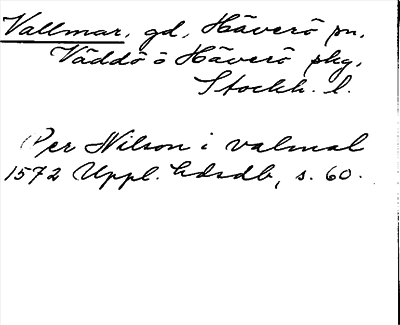 Vallmar, gd, Häverö sn,
Väddö o Häverö skg,
Stockh. l.
Per Nilson i valmal
1572 Uppl. hdsdb, s. 60.